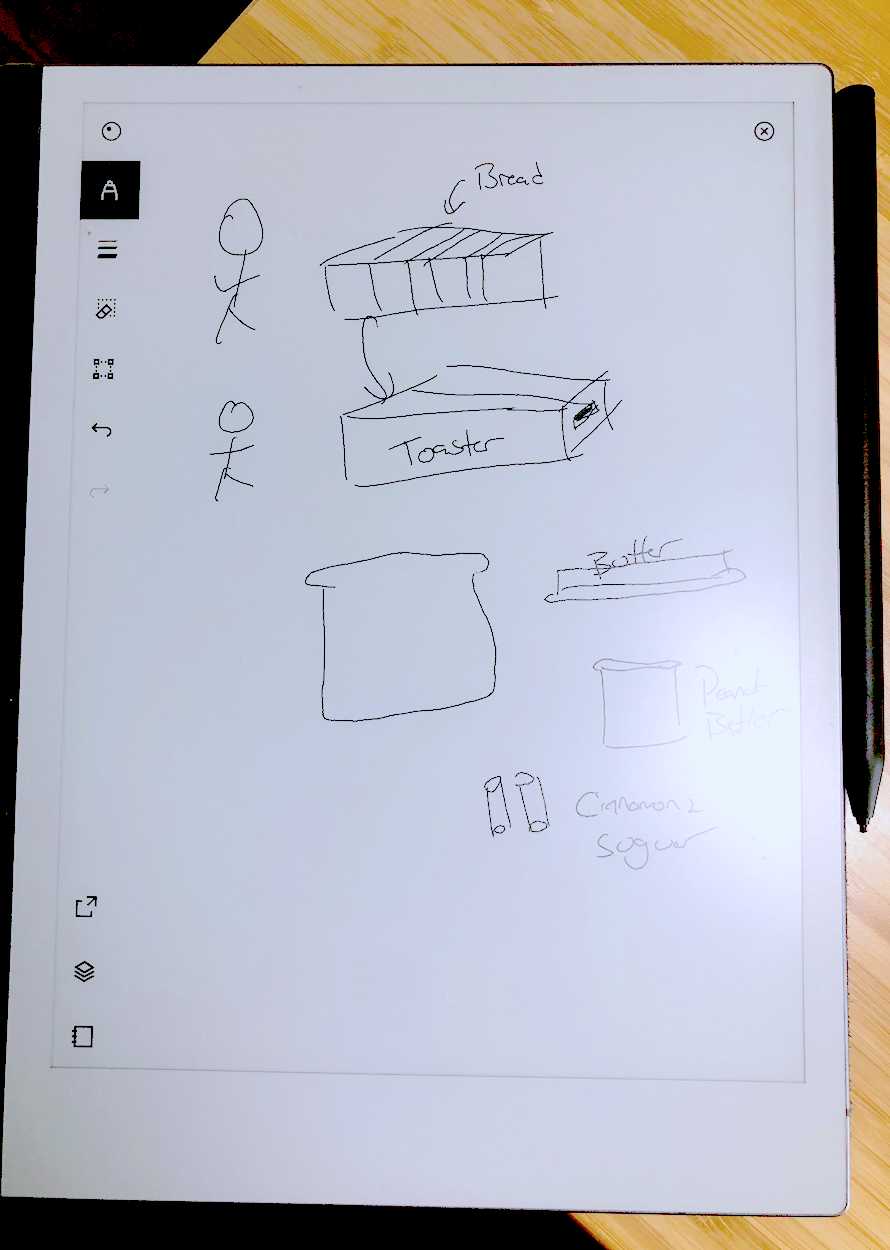 Bread
Toaster
Butter
Peanut
Butter
Cinnamon &
Sugar